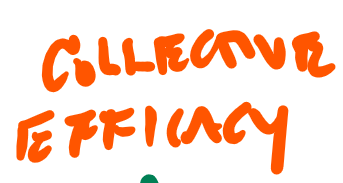 COLLECTIVE
EFFICACY